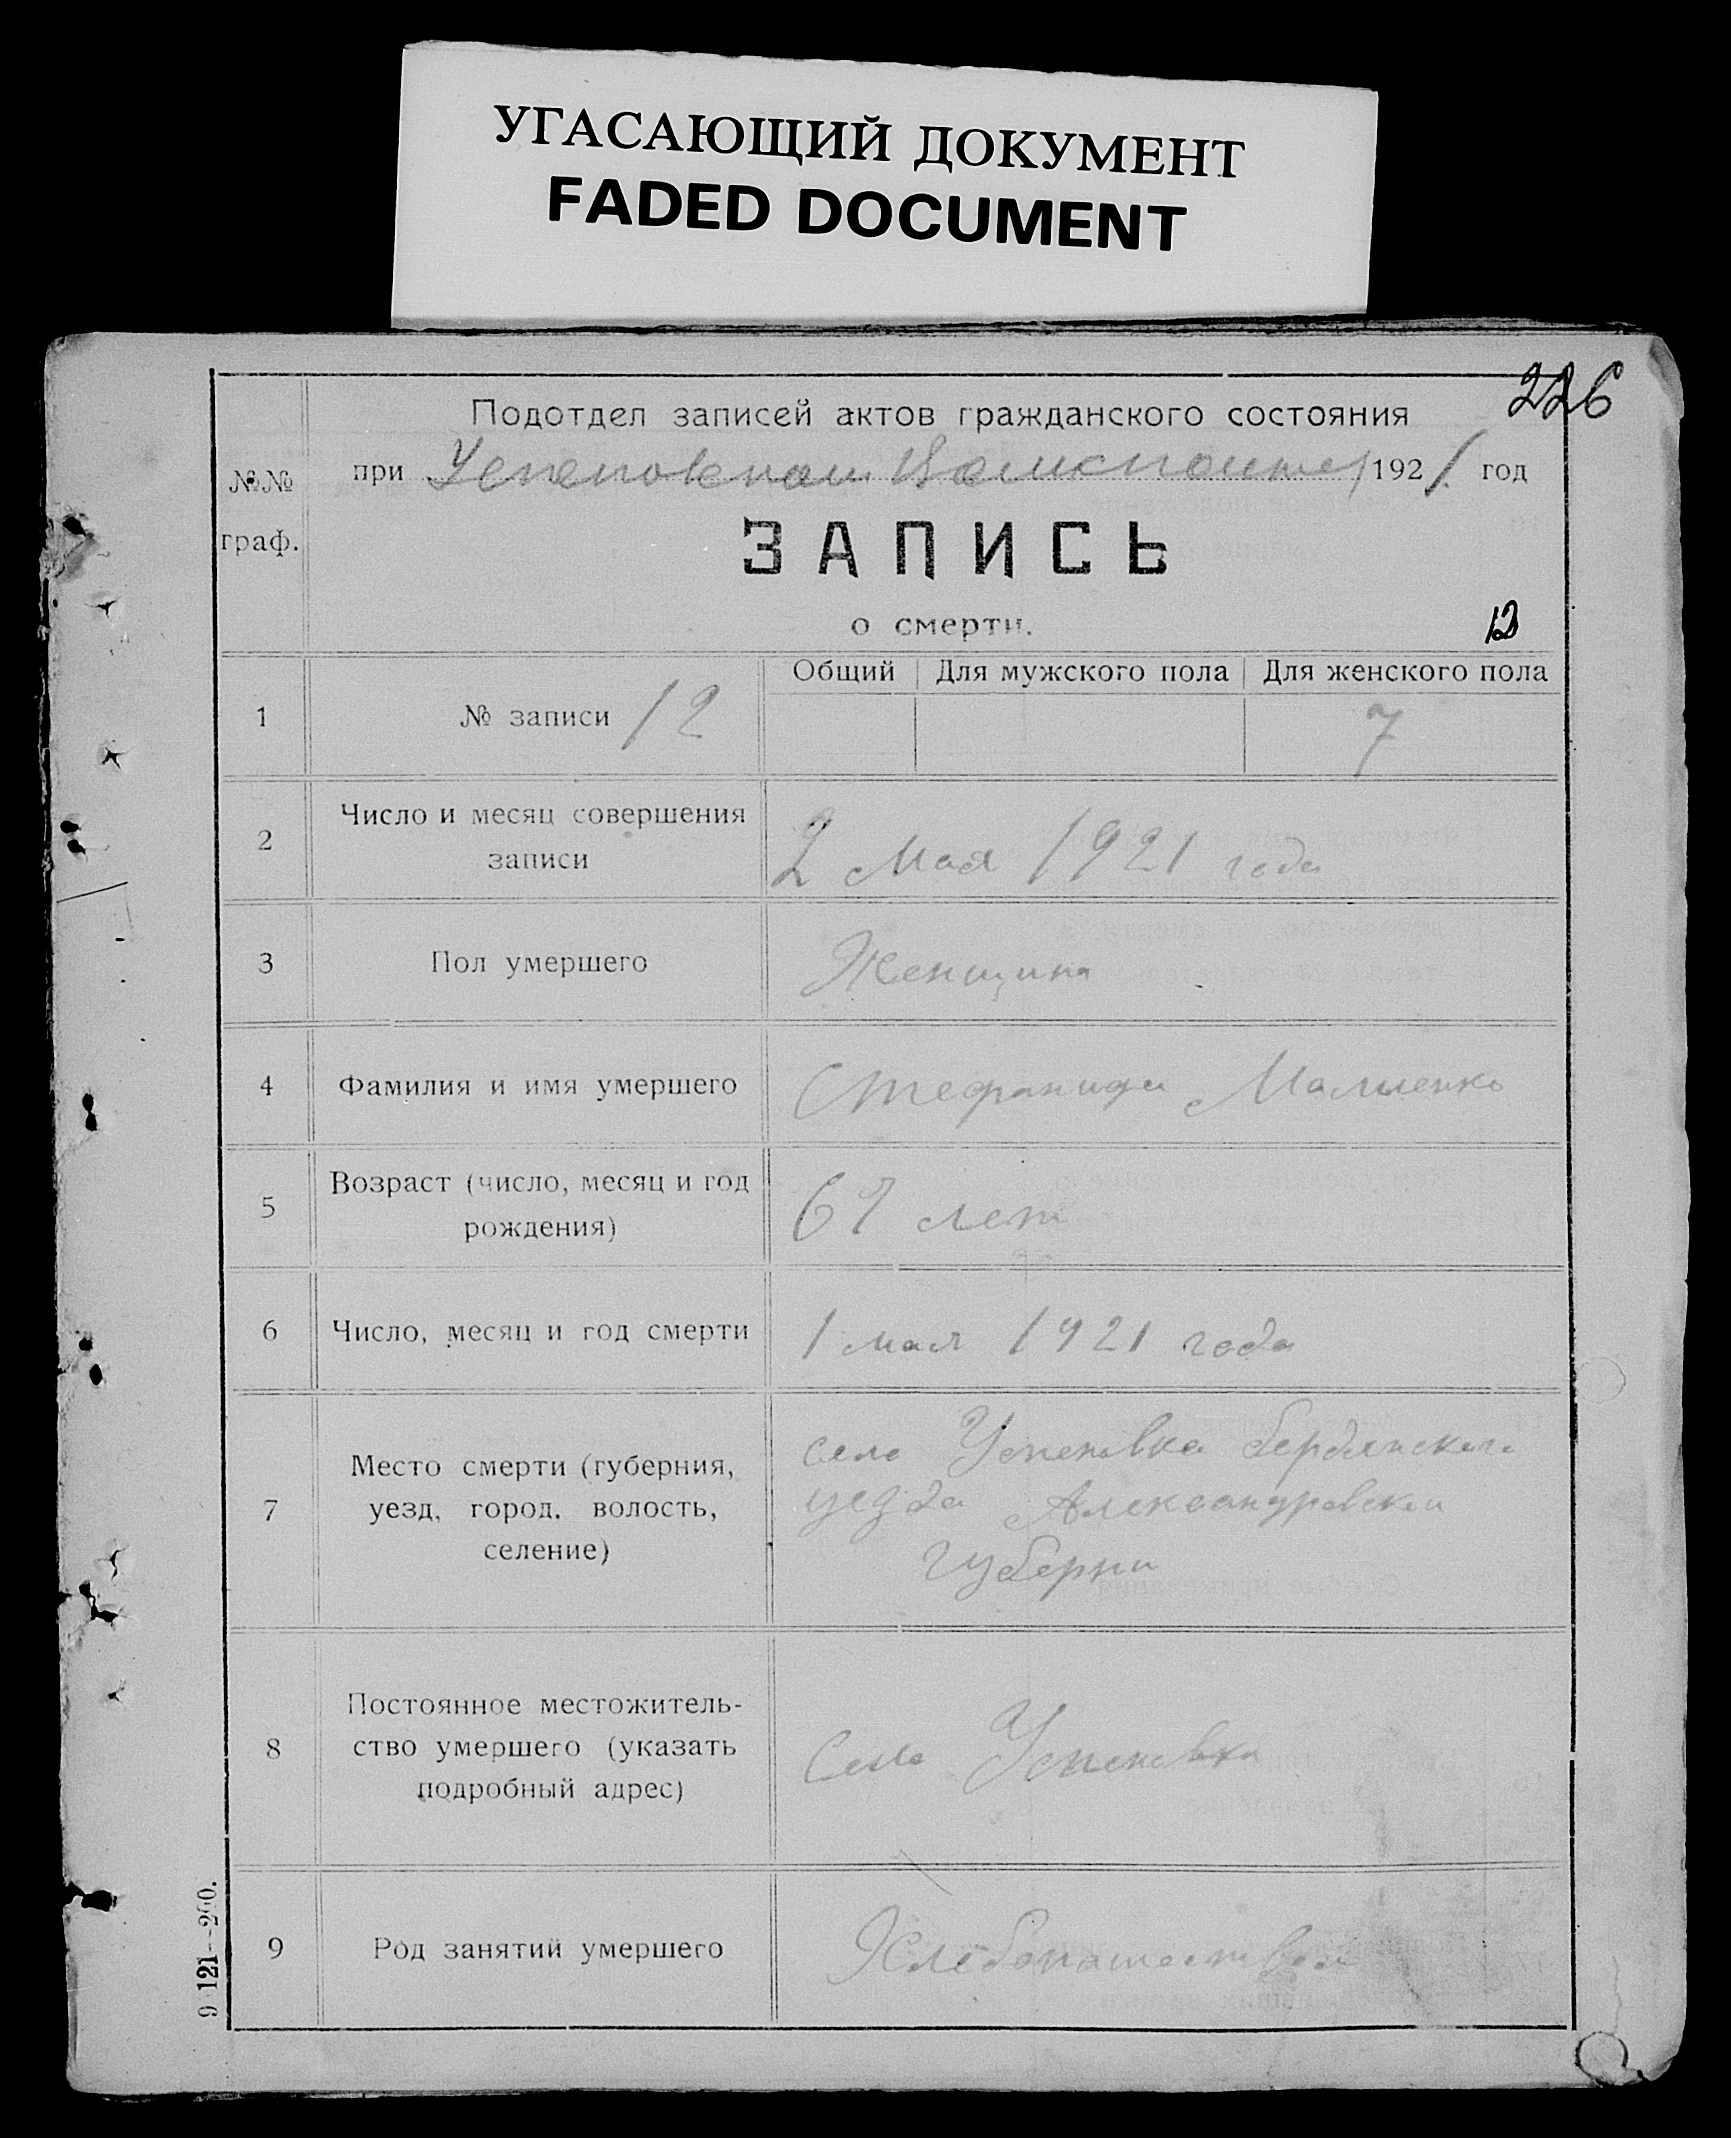 УГАСАЮЩИЙ ДОКУМЕНТ
FADED DOCUMENT
226
Подотдел записей актов гражданского состояния
при 1921 год
№№ граф.
ЗАПИСЬ
о смерти.
12
Общий Для мужского пола Для женского пола
1 № записи 12 7
2 Число и месяц совершения
записи
2 Мая 1921 года
3 Пол умершего Женщина
4 Фамилия и имя умершего Стефанида
5 Возраст (число, месяц и год
рождения)
67 лет
6 Число, месяц и год смерти 1 мая 1921 года
7 Место смерти (губерния,
уезд, город, волость,
селение)
село Успеновка бердянскаго
уезда Александровской
Губерни
8 Постоянное местожитель-
ство умершего (указать
подробный адрес)
Село Успеновка
9 Род занятий умершего
9 121—200.